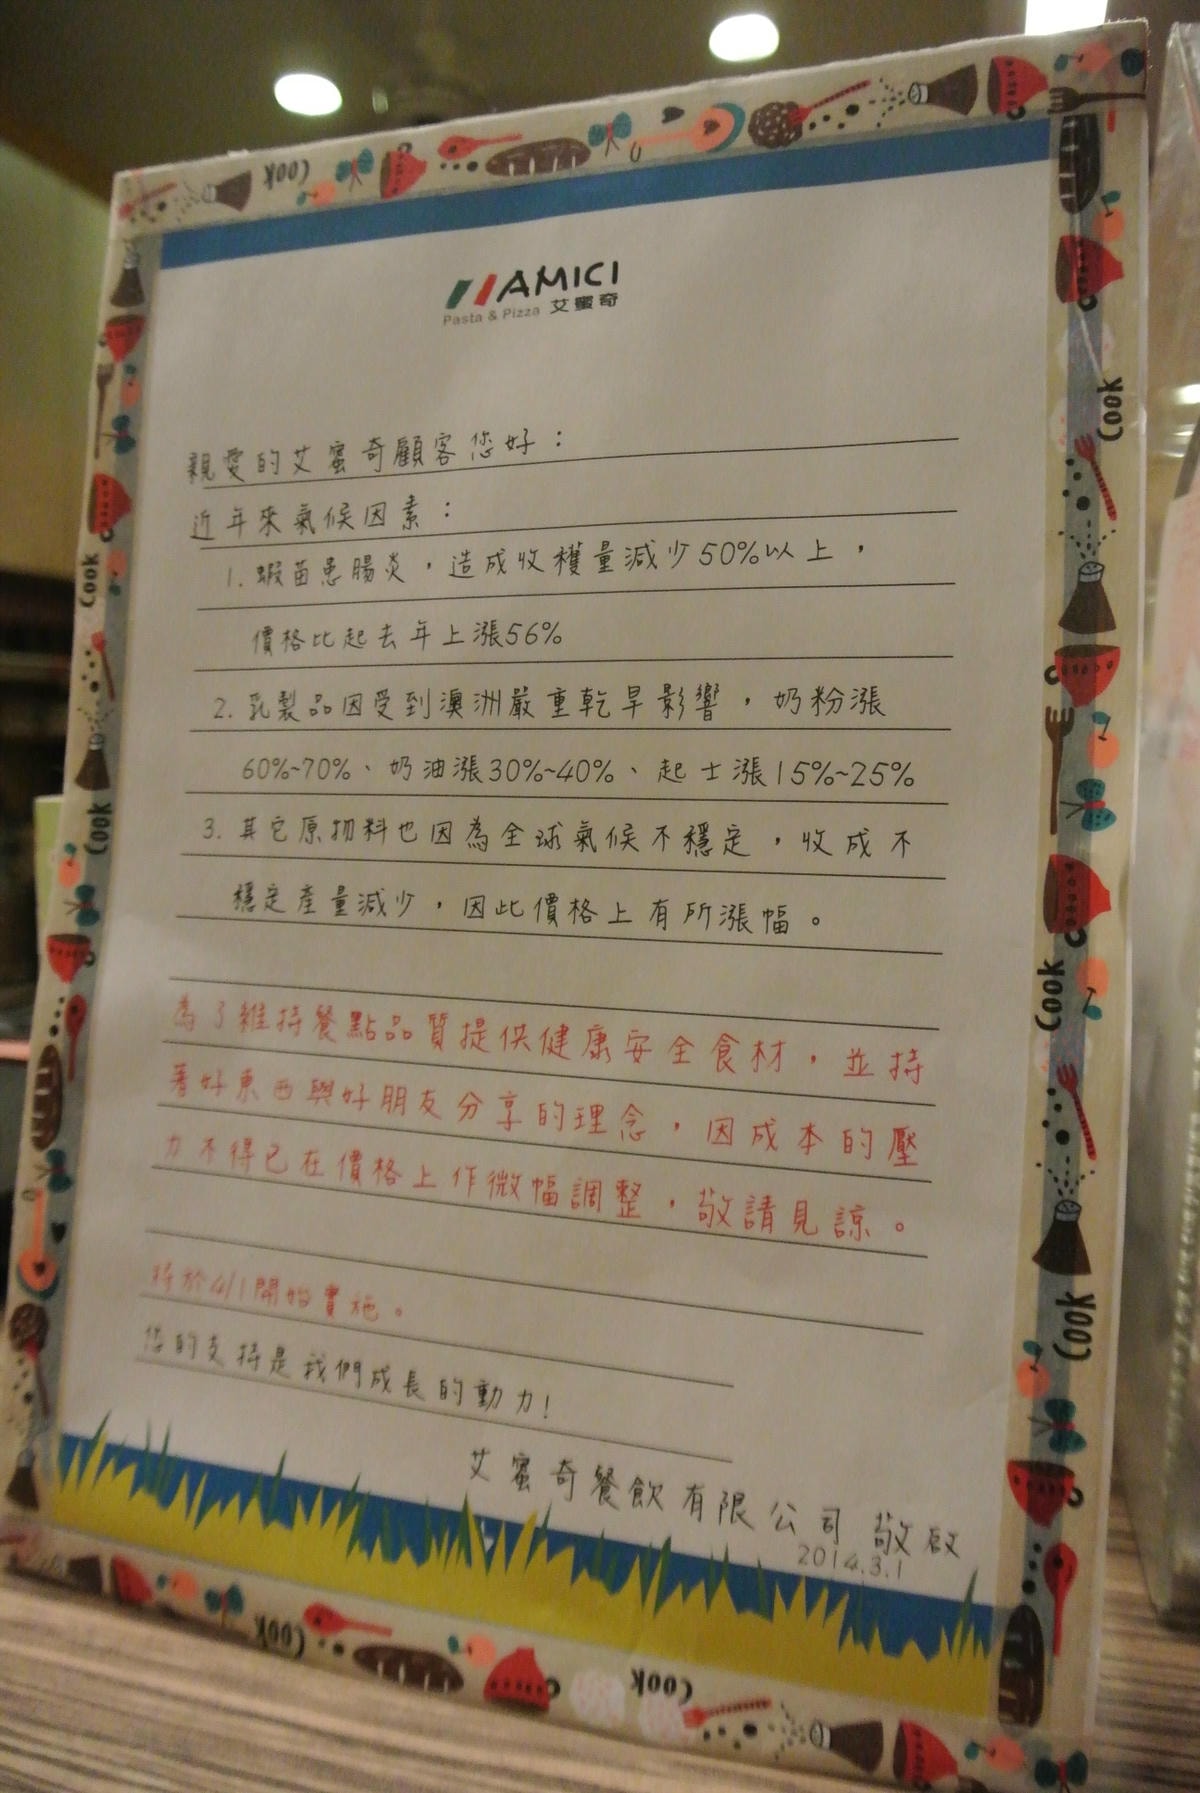 AMICI
Pasta & Pizza 艾蜜奇
親愛的艾蜜奇顧客您好：
近年來氣候因素：
1. 蝦苗患腸炎，造成收穫量減少50%以上，
價格比起去年上漲56%
2. 乳製品因受到澳洲嚴重乾旱影響，奶粉漲
60%~70%、奶油漲30%~40%、起士漲15%~25%
3. 其它原物料也因為全球氣候不穩定，收成不
穩定產量減少，因此價格上有所漲幅。
為了維持餐點品質提供健康安全食材，並持
著好東西與好朋友分享的理念，因成本的壓
力不得已在價格上作微幅調整，敬請見諒。
將於4/1開始實施。
您的支持是我們成長的動力!
艾蜜奇餐飲有限公司 敬啟
2014.3.1
Cook
Cook
Cook
Cook
Cook
Cook
Cook
Cook